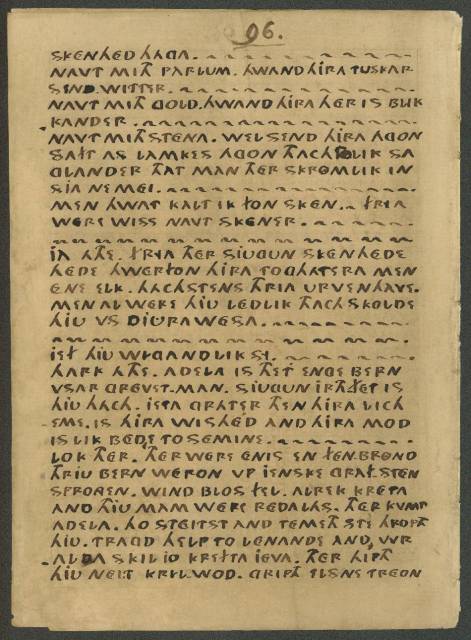 96.
SKENHED HAVA.
NAVT MITH PARLUM. HWAND HIRA TUSKAR
SEND WITTER.
NAVT MITH GOLD. HWAND HIRA HER IS BLIK
KANDER.
NAVT MITH STENA. WEL SEND HIRA AGON
SAFT AS LAMKES AGON THACH TO LIK SA
GLANDER THAT MAN THER SKROMLIK IN
SIA NE MEI.
MEN HWAT KALT IK FON SKEN. FRYA
WERE WISS NAVT SKENER.
JA ATHE. FRYA THER SIUGUN SKENHEDE
HEDE HWERFON HIRA TOGHATERA MEN
ENE ELK. HACHSTENS THRIA URVEN HAVE.
MEN AL WERE HIU LEDLIK THACH SKOLDE
HIU VS DIURA WESA.
IEF HIU WIGANDLIK SI.
HARK ATHE. ADELA IS THET ENGE BERN
VSAR GREVET-MAN. SIUGUN IRTHFET IS
HIU HACH. IETA GRATER THEN HIRA LICH
EME. IS HIRA WISHED AND HIRA MOD
IS LIK BEDE TO SEMINE.
LOK THER. THER WERE ENIS EN FEN-BROND
THRIU BERN WERON VP IENSKE GRAF-STEN
SPRONGEN. WIND BLOS FEL. ALREK KRETA
AND THIU MAM WERE REDALAS. THER KVMT
ADELA. HO STEITST AND TEMETH STE HROPTH
HIU. TRAGD HELP TO LENANDE AND, WR
ALDA SKIL IO KREFTA IEVA. THER HIPTH
HIU NEIT KRYLWOD. GRIPTH ELSNE TREON